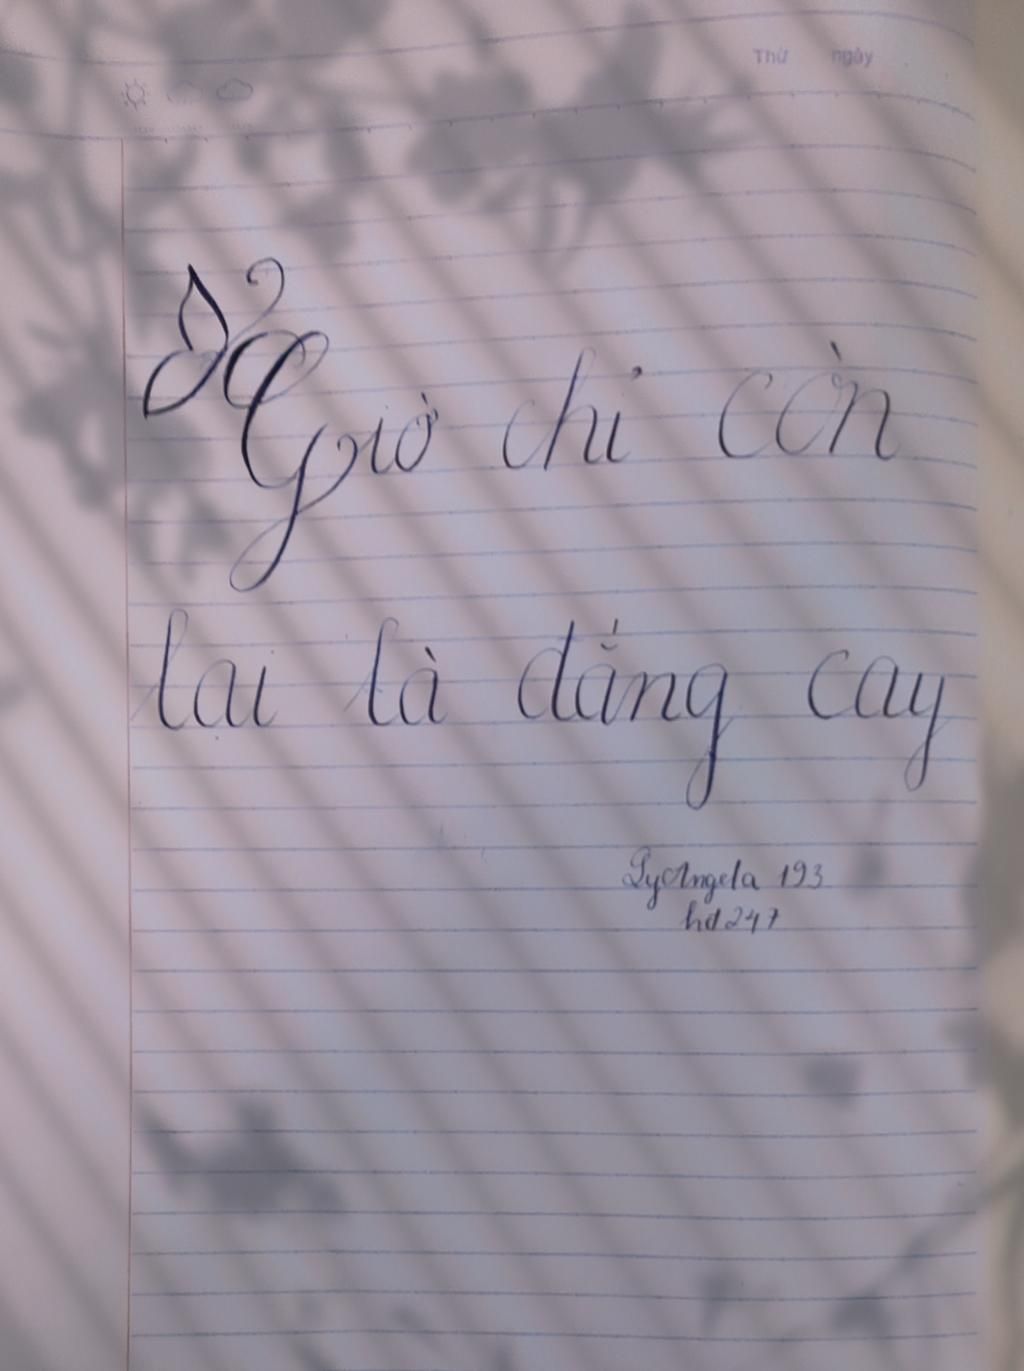 Thứ ngày
Giờ chỉ còn
lại là đắng cay
LyAngela 193
hd247